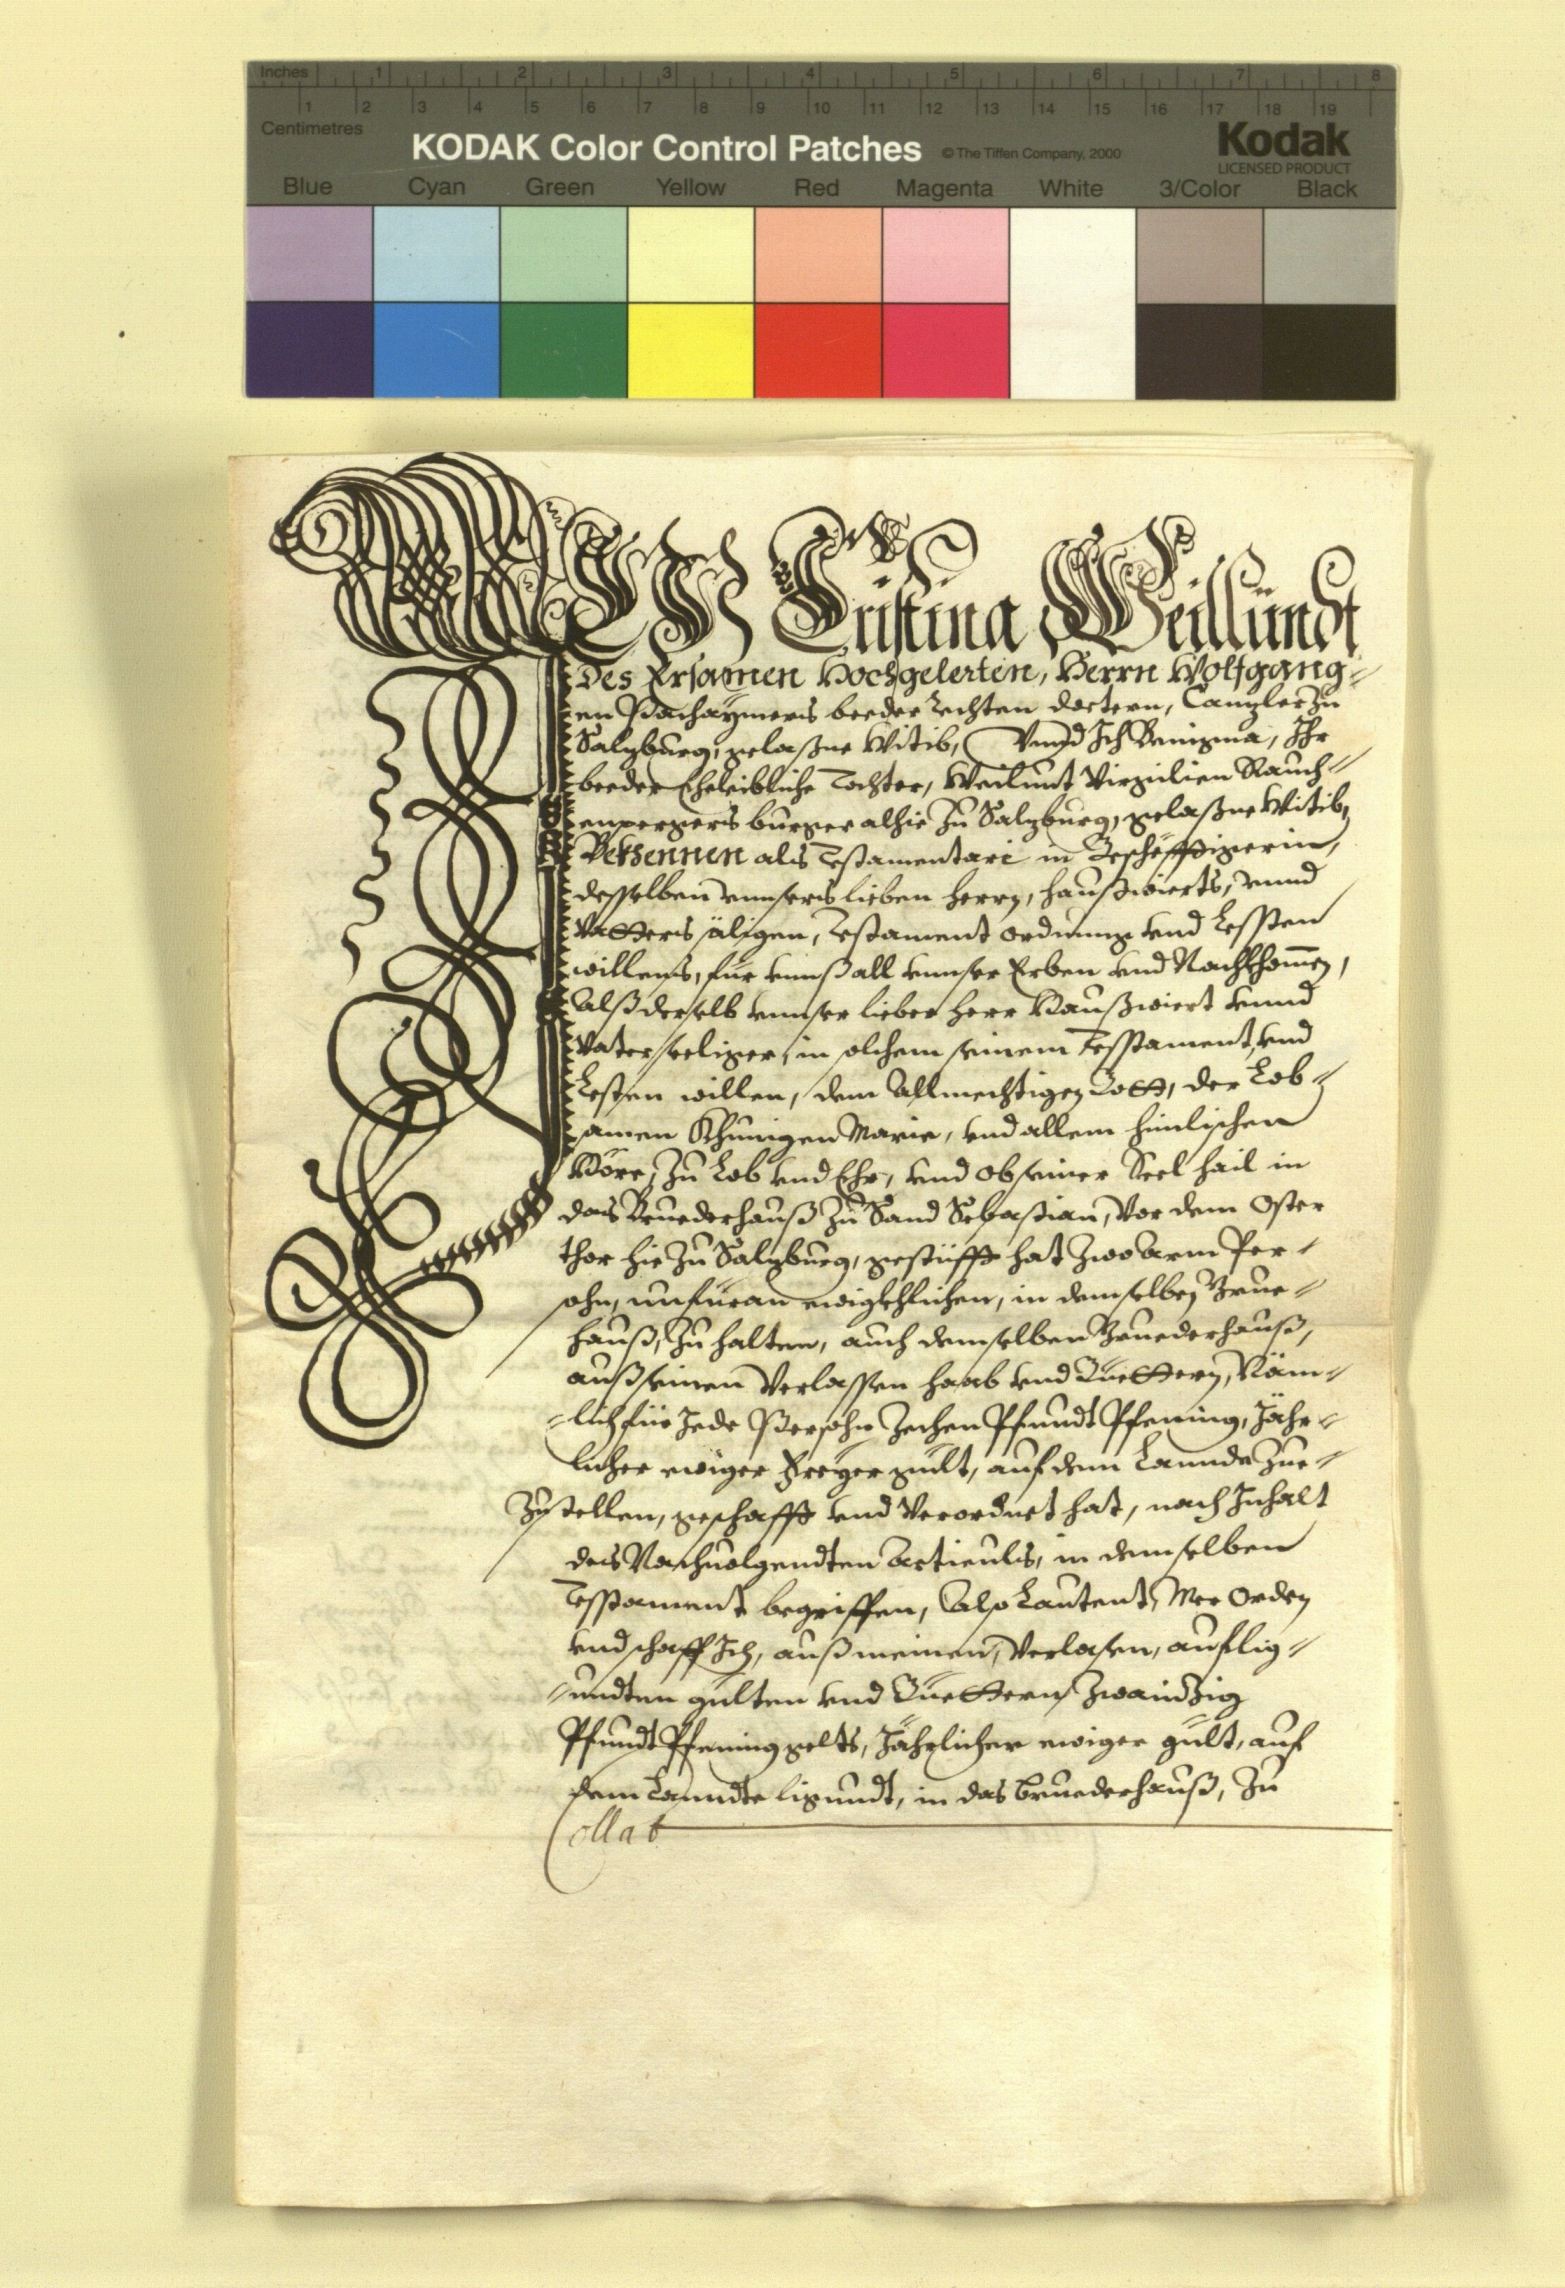 Inches 1 2 3 4 5 6 7 8
1 2 3 4 5 6 7 8 9 10 11 12 13 14 15 16 17 18 19
Centimetres
KODAK Color Control Patches © The Tiffen Company, 2000 Kodak
LICENSED PRODUCT
Blue Cyan Green Yellow Red Magenta White 3/Color Black
Cristina Weillundt
des Ersamen Hochgelerten, Herrn Wolfgang-
en Pachaymers beeder rechten doctorn, Canzler zu
Salzburg, gelaßne Witib, Vnnd Ich Benigna, Ihr
beeder Eheleibliche Tochter, Weilunt Virgilien Rauch-
enpergers burger alhie zu Salzburg, gelaßne Witib,
Bekhennen als Testamentari in Geschefftigerin,
desselben vnnsers lieben herrn, haußwierts, vnnd
Vatters säligen, Testament ordnung vnd Lessten
willens, für vnnß all vnnser Erben vnd Nachkhomen,
Alß derselb vnnser lieber herr Haußwiert vnnd
Vater seeliger, in solchem seinem Tesstament, vnd
Lesten willen, dem Allmechtigen Gott, der Lob-
samen Khunigen Marie, vnd allem himlischen
Höre, zu Lob vnd Ehr, vnd ob seiner Seel hail in
das Bruederhauß zu Sand Sebastian, vor dem Oster
thor hie zu Salzburg, gestüfft hat zwo arm Per-
sohn, nunfüran ewigkhlichen, in demselben Brue-
hauß, zu halten, auch demselben Bruederhauß,
auß seinen Verlassen haab vnd Guettern, Näm-
-lich für Jede Persohn Zechen Pfundt Pfening, Jähr-
licher ewiger Freyer gült, auf dem Lannde zue-
Zustellen, geschafft vnd Verordnet hat, nach Inhalt
des Nachuolgendten Articuls, in demselben
Tesstament begriffen, Also Lautent, Mer Orden
vnd schaff Ich, auß meinen, Verlasen, aufflig-
-undten gülten vnd Guettern, Zwaindzig
Pfundt Pfening gelts, Jährlicher ewiger gült, auf
dem Lanndte ligundt, in das bruederhauß, zu
Collat